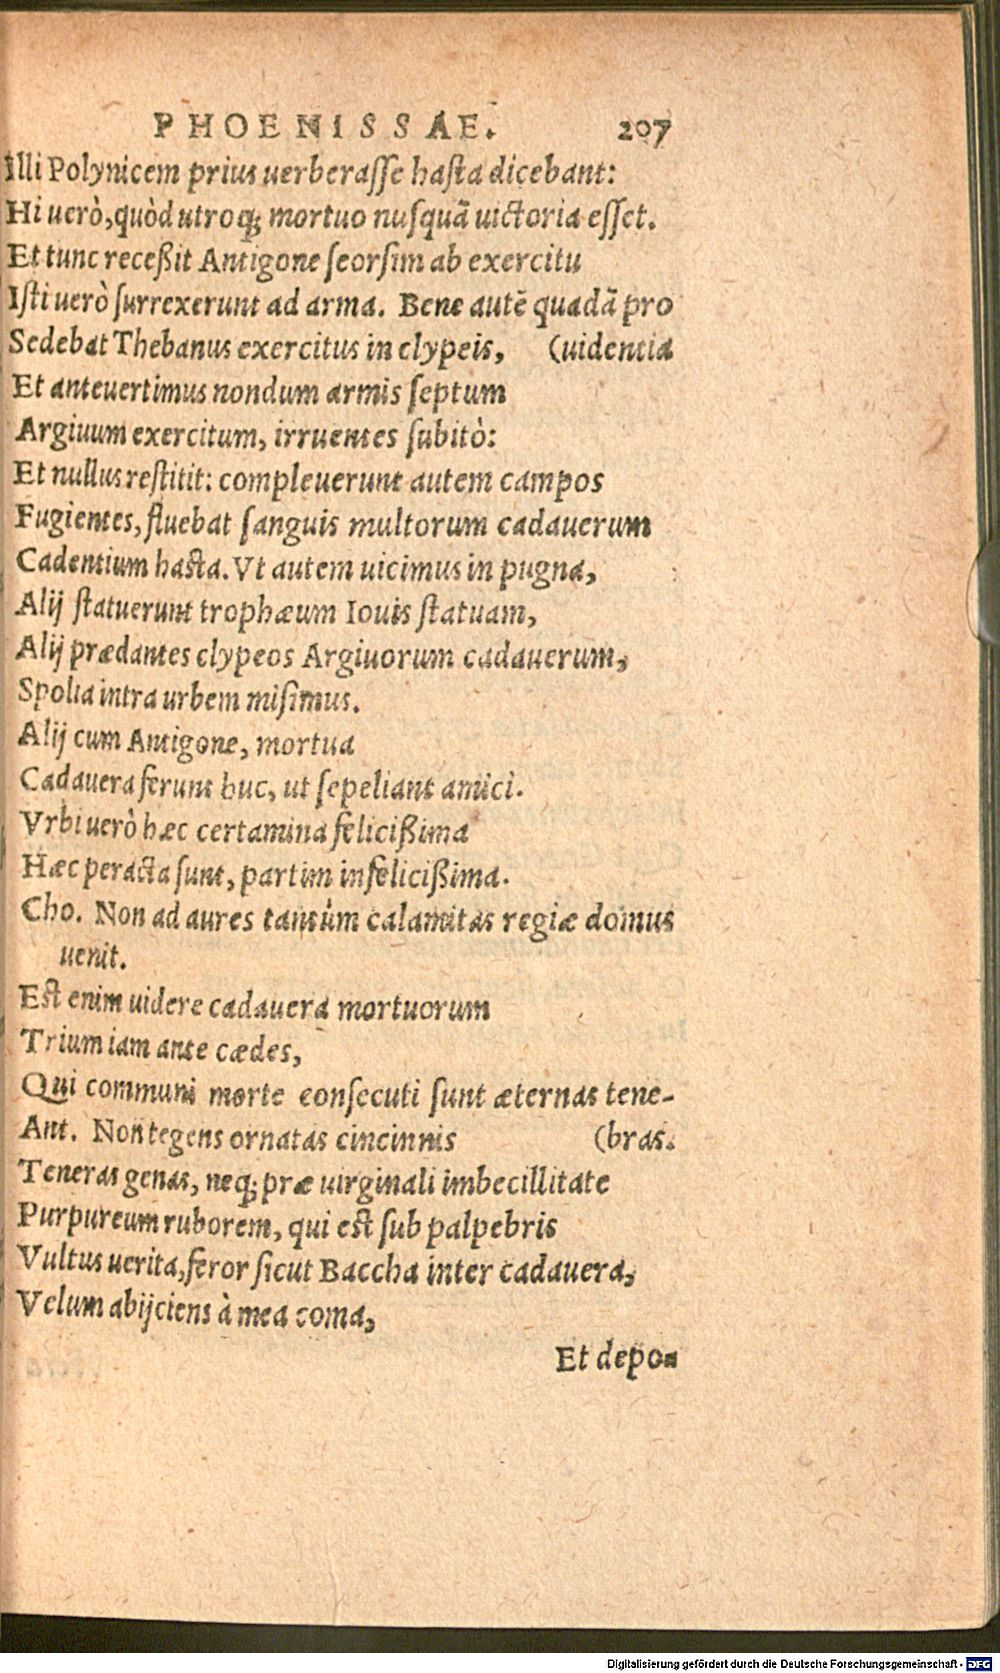 PHOENISSAE. 207
Illi Polynicem prius uerberasſe haſta dicebant:
Hi uerò, quòd utroq; mortuo nuſquã uictoria eſſet.
Et tunc receßit Antigone ſeorſim ab exercitu
Iſti uerò ſurrexerunt ad arma. Bene autẽ quadã pro
Sedebat Thebanus exercitus in clypeis, (uidentia
Et anteuertimus nondum armis ſeptum
Argiuum exercitum, irruentes ſubitò:
Et nullus reſtitit: compleuerunt autem campos
Fugientes, fluebat ſanguis multorum cadauerum
Cadentium haſta. Vt autem uicimus in pugna,
Alij ſtatuerunt trophæum Iouis ſtatuam,
Alij prædantes clypeos Argiuorum cadauerum,
Spolia intra urbem miſimus.
Alij cum Antigone, mortua
Cadauera ferunt huc, ut ſepeliant amici.
Vrbi uerò hæc certamina felicißima
Hæc peracta ſunt, partim infelicißima.
Cho. Non ad aures tantùm calamitas regiæ domus
uenit.
Eſt enim uidere cadauera mortuorum
Trium iam ante cædes,
Qui communi morte conſecuti ſunt æternas tene-
Ant. Non tegens ornatas cincinnis (bras.
Teneras genas, neq; præ uirginali imbecillitate
Purpureum ruborem, qui eſt ſub palpebris
Vultus uerita, feror ſicut Baccha inter cadauera,
Velum abijciens à mea coma,
Et depo-
Digitalisierung gefördert durch die Deutsche Forschungsgemeinschaft - DFG